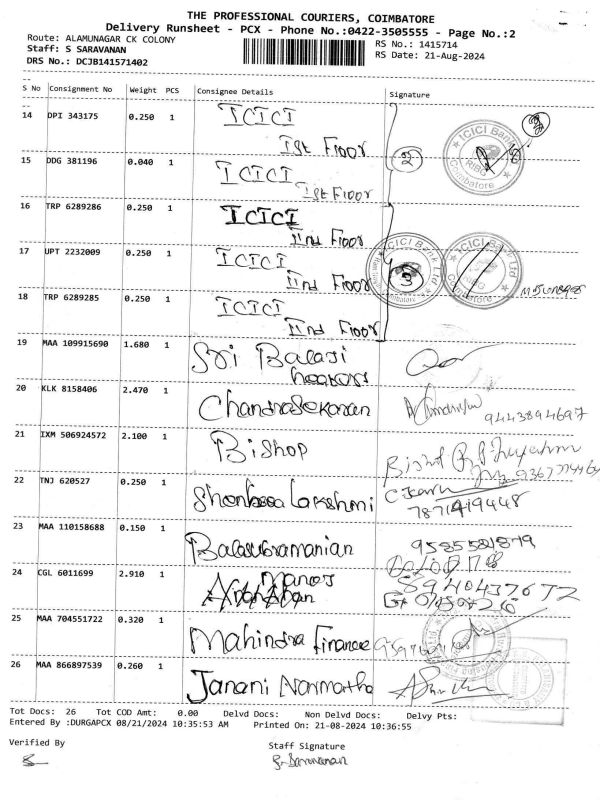 THE PROFESSIONAL COURIERS, COIMBATORE
Delivery Runsheet - PCX - Phone No.:0422-3505555 - Page No.:2
Route: ALAMUNAGAR CK COLONY
RS No.: 1415714
Staff: S SARAVANAN
RS Date: 21-Aug-2024
DRS No.: DCJB141571402
S No Consignment No Weight PCS Consignee Details Signature
14 DPI 343175 0.250 1 ICICI
Ist Floor
15 DDG 381196 0.040 1 ICICI
Ist Floor
2
ICICI Bank
Coimbatore
16 TRP 6289286 0.250 1 ICICI
IInd Floor
17 UPT 2232009 0.250 1 ICICI
IInd Floor
3
ICICI Bank Ltd
ICICI Bank Ltd
Coimbatore
18 TRP 6289285 0.250 1 ICICI
IInd Floor
19 MAA 109915690 1.680 1 Sri Balaji
20 KLK 8158406 2.470 1 Chandrasekaran
9443894697
21 IXM 506924572 2.100 1 Bishop
22 TNJ 620527 0.250 1 Lakshmi
7871419448
23 MAA 110158688 0.150 1 Balasubramanian
24 CGL 6011699 2.910 1 Manoj
25 MAA 704551722 0.320 1 Mahindra Finance
26 MAA 866897539 0.260 1 Janani
Tot Docs: 26 Tot COD Amt: 0.00 Delvd Docs: Non Delvd Docs: Delvy Pts:
Entered By :DURGAPCX 08/21/2024 10:35:53 AM Printed On: 21-08-2024 10:36:55
Verified By
Staff Signature
S. Saravanan